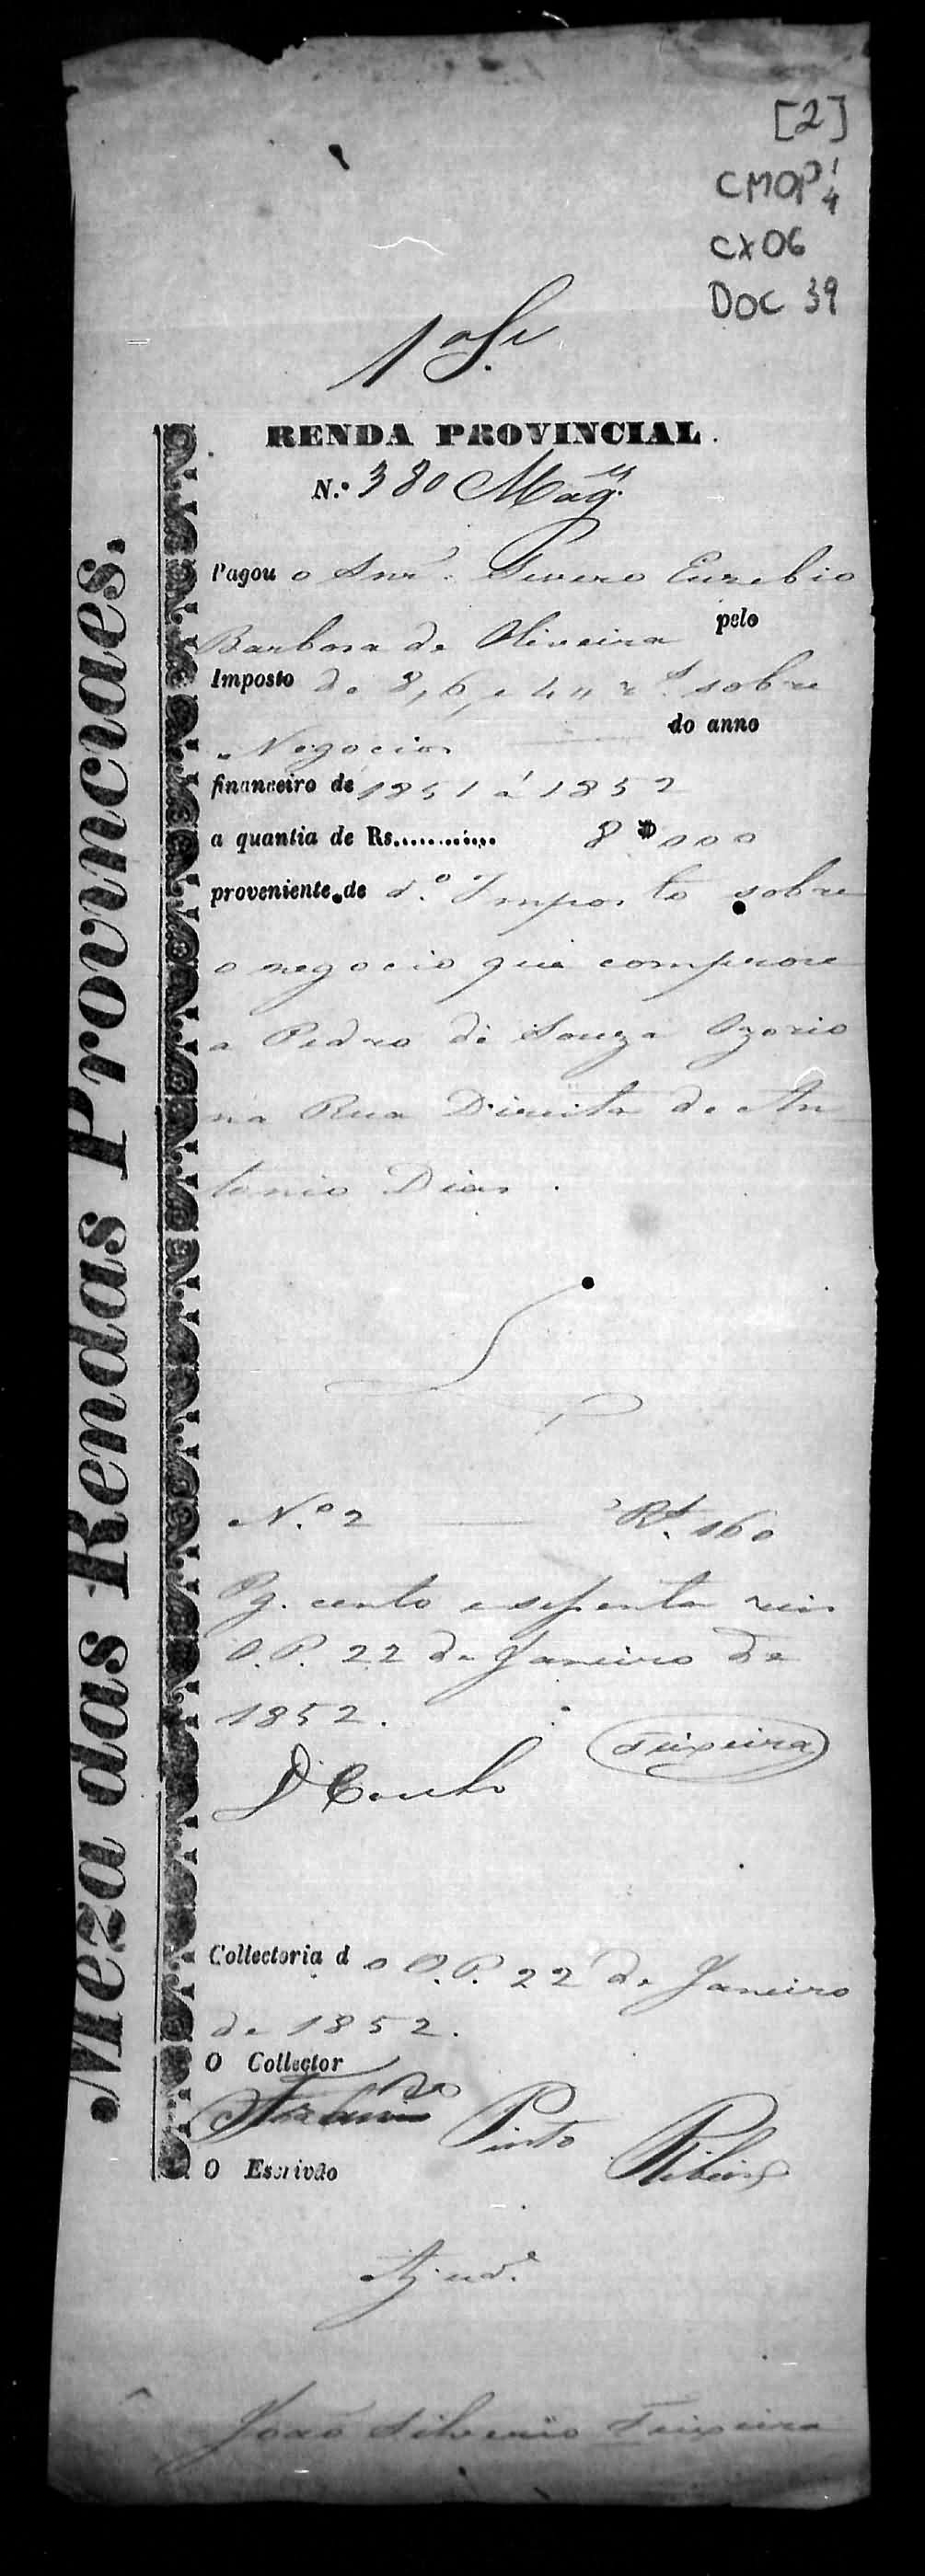 [2]
CMOP 1/4
CX 06
DOC 39
1º
RENDA PROVINCIAL.
N.º 380
Pagou o Snr. Severo Euzebio
Barbosa de Oliveira pelo
Imposto de 8, 6, e 4 " rs. sobre
Negocios do anno
financeiro de 1851 á 1852
a quantia de Rs............ 8$000
proveniente de d.º Imposto sobre
o negocio que comprou
a Pedro de Souza Ozorio
na Rua Direita de An
tonio Dias.
N.º 2 Rs. 160
Pg. cento e sessenta reis
O. P. 22 de Janeiro de
1852.
Teixeira
Coelho
Collectoria do O. P. 22 de Janeiro
de 1852.
O Collector
Pinto Ribeiro
O Escrivão
Ajud.e
João Silverio Teixeira
Meza das Rendas Provinciaes.